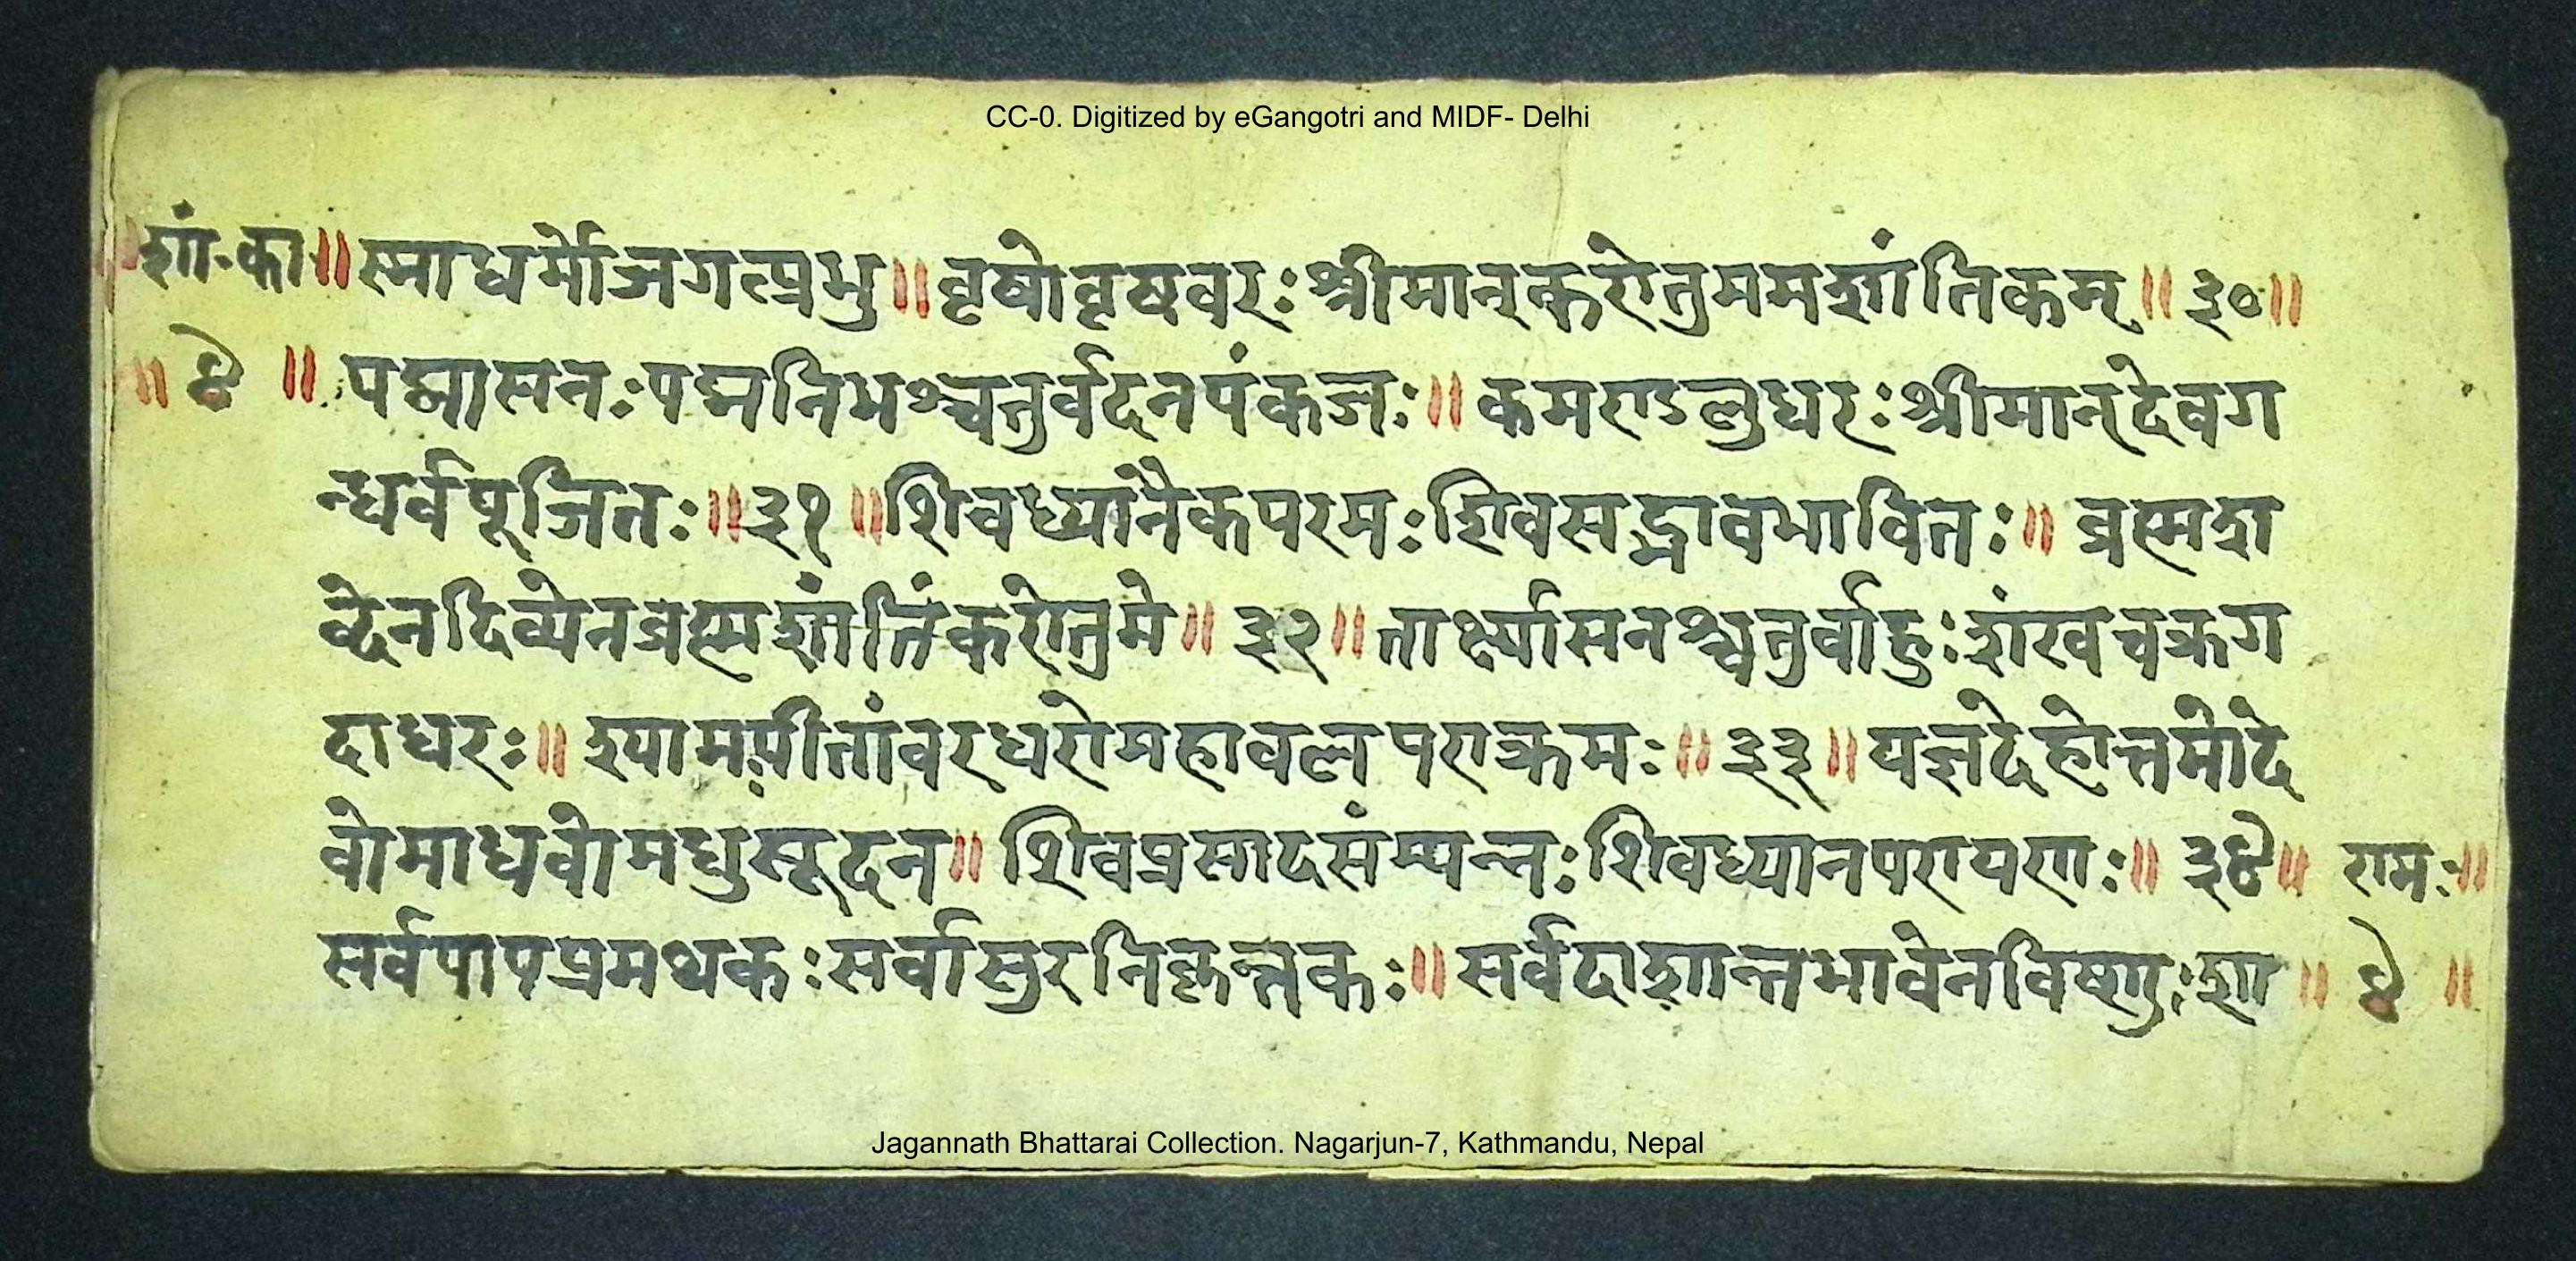 CC-0. Digitized by eGangotri and MIDF- Delhi
॥शां॰का॥ स्माधर्मोजगत्प्रभु॥वृषोवृषवरःश्रीमान्करोतुममशांतिकम्॥३०॥
॥४॥ पद्मासनःपद्मनिभश्चतुर्वदनपंकजः॥कमण्डलुधरःश्रीमान्देवग
न्धर्वपूजितः॥३१॥शिवध्यानैकपरमःशिवसद्भावभावितः॥ब्रह्मश
ब्देनदिव्येनब्रह्मशांतिंकरोतुमे॥३२॥तार्क्ष्यासनश्चतुर्वाहुःशंखचक्रग
दाधरः॥श्यामपीतांवरधरोमहावलपराक्रमः॥३३॥यज्ञदेहोत्तमोदे
वोमाधवोमधुसूदन॥शिवप्रसादसंम्पन्नःशिवध्यानपरायणः॥३४॥ रामः॥
सर्वपापप्रमथकःसर्वासुरनिकृन्तकः॥सर्वदाशान्तभावेनविष्णुःशा॥४॥
Jagannath Bhattarai Collection. Nagarjun-7, Kathmandu, Nepal